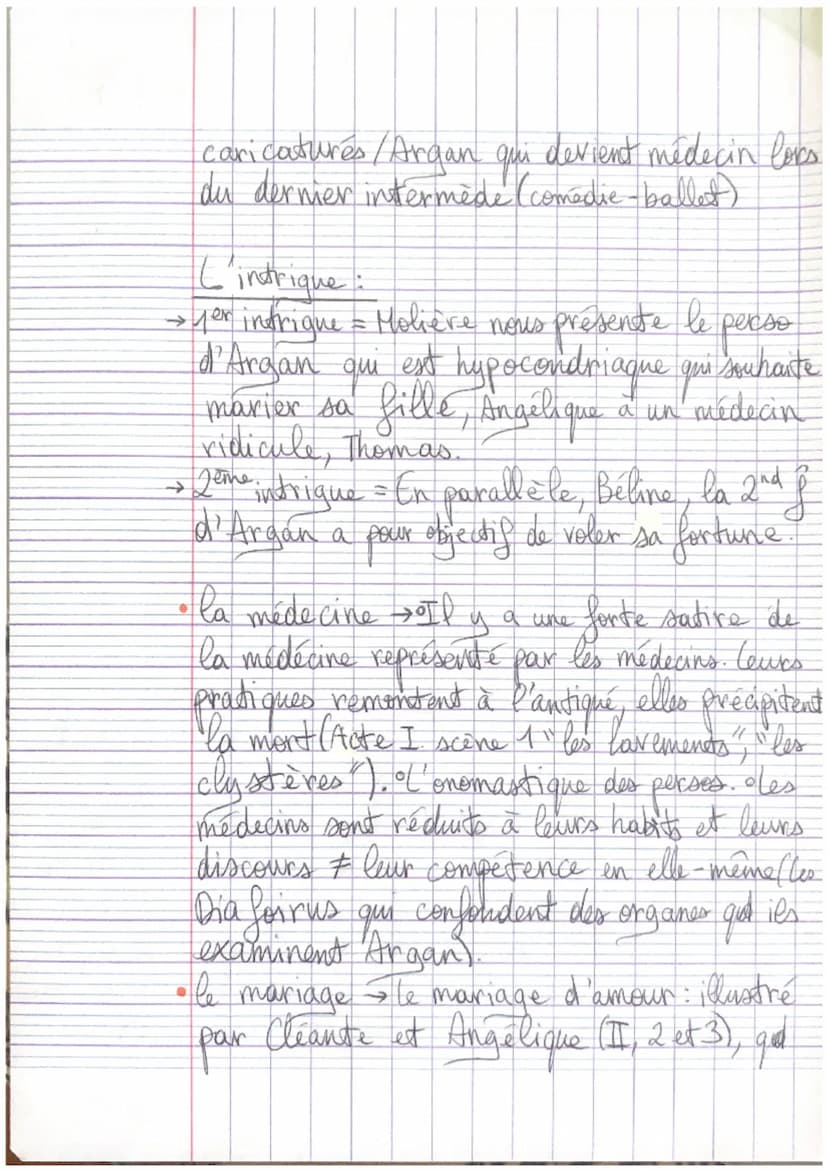 caricaturés/Argan qui devient médecin lors
du dernier intermède (comédie-ballet)
L'intrigue :
→ 1er intrigue = Molière nous présente le perso
d'Argan qui est hypocondriaque qui souhaite
marier sa fille, Angélique à un médecin
ridicule, Thomas.
→ 2ème intrigue = En parallèle, Béline, la 2nd f
d'Argan a pour objectif de voler sa fortune.
• la médecine → °Il y a une forte satire de
la médécine représenté par les médecins. Leurs
pratiques remontent à l'antiqué, elles précipitent
la mort (Acte I scène 1 "les lavements", "les
clystères"). °L'onomastique des persos. °Les
médecins sont réduits à leurs habits et leurs
discours ≠ leur compétence en elle-même (les
Diafoirus qui confondent des organes qd ils
examinent Argan).
• le mariage → le mariage d'amour : illustré
par Cléante et Angélique (II, 2 et 3), qd